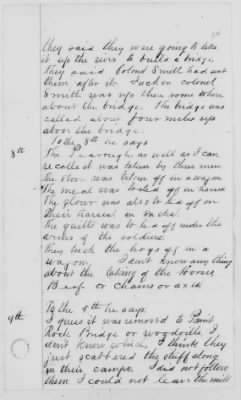 they said they were going to take
it up the river to build a bridge
They said Colonel Smith had sent
them after it. Such a colonel
Smith was up then some where
about the bridge. The bridge was
called about four miles up
above the bridge.
To the 8th he says
8th
The as well as I can
recollect was taken by these men
the flour was taken off in a wagon
The meal was toted off on horses
The flour was also toted off on
their horses in sacks.
The quilts was toted off under the
arms of the soldiers.
they took the hogs off in a
wagon, I don't know any thing
about the taking of the
Beef or Chains or axes
9th
To the 9th he says:
I guess it was removed to Paint
Rock Bridge or Woodville, I
don't know which, I think they
just scattered the stuff along
in their camps. I did not follow
them I could not leave the mill